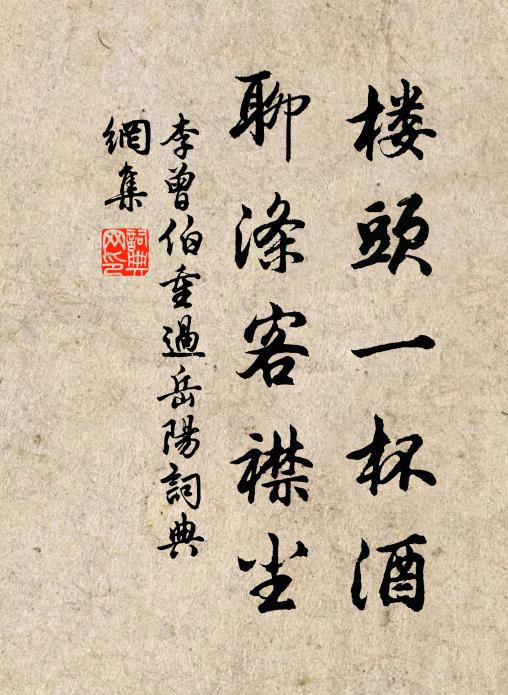 楼頭一杯酒
聊滌客襟尘
李曾伯重過岳陽詞典
網集
詞典
网印